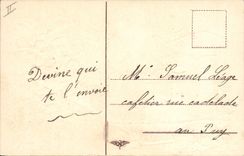 II
Devine qui
te l'envoie
Mr. Samuel Lepge
cafetier rue cadelade
au Puy